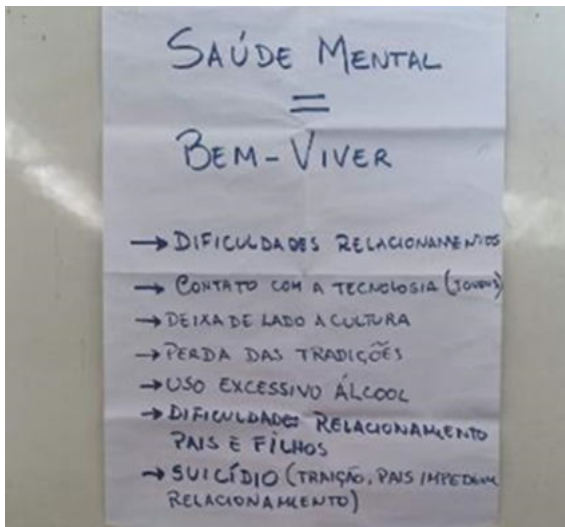 SAÚDE MENTAL
=
BEM-VIVER
→ DIFICULDADES RELACIONAMENTOS
→ CONTATO COM A TECNOLOGIA (JOVENS)
→ DEIXA DE LADO A CULTURA
→ PERDA DAS TRADIÇÕES
→ USO EXCESSIVO ÁLCOOL
→ DIFICULDADES RELACIONAMENTO
PAIS E FILHOS
→ SUICÍDIO (TRAIÇÃO, PAIS IMPEDEM
RELACIONAMENTO)